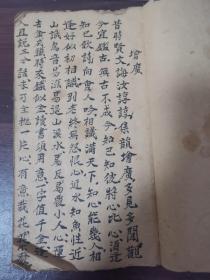 增廣
昔時賢文誨汝諄諄集韻增廣多見多聞觀
今宜鑑古無古不成今知己知彼將心比心酒逢
知己飲詩向會人吟相識滿天下知心能幾人相
逢好似初相識到老終無怨恨心近水知魚性近
山識鳥音易漲易退山溪水易反易覆小人心運
去金成鐵時來鐵似金讀書須用意一字值千金逢
且說三分話未可全拋一片心有意栽花花